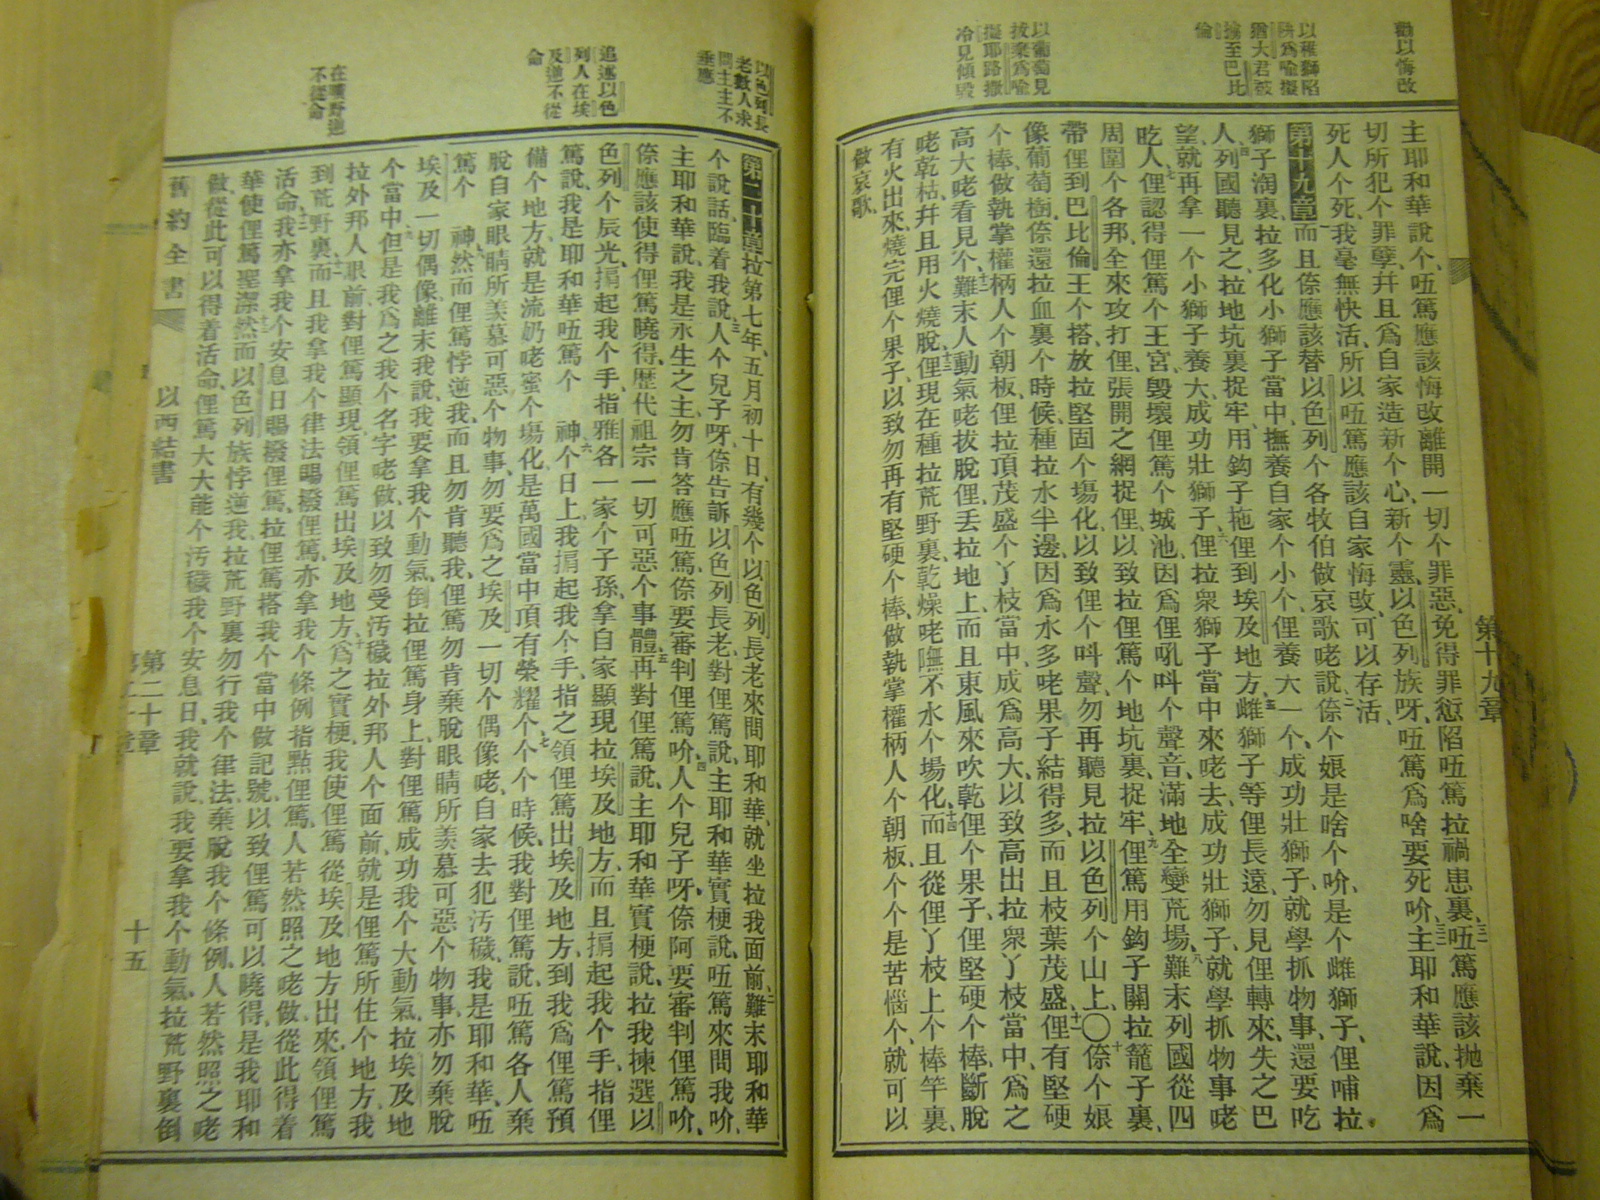 勸以悔改
以稚獅陷
阱爲喻擬
猶大君被
擒至巴比
倫
以葡萄見
拔棄爲喻
擬耶路撒
冷見傾毀
第十九章
主耶和華說个、吾篤應該悔改離開一切个罪惡、免得罪愆陷吾篤拉禍患裏、吾篤應該抛棄一
切所犯个罪孽、幷且爲自家造新个心、新个靈、以色列族呀、吾篤爲啥要死吤、主耶和華說、因爲
死人个死、我毫無快活、所以吾篤應該自家悔改、可以存活、
第十九章 而且倷應該替以色列个各牧伯做哀歌咾說、倷个娘是啥个吤、是个雌獅子、俚哺拉
獅子淘裏、拉多化小獅子當中、撫養自家个小个、俚養大一个、成功壯獅子、就學抓物事、還要吃
人、列國聽見之、拉地坑裏捉牢、用鈎子拖俚到埃及地方、雌獅子等俚長遠、勿見俚轉來、失之巴
望、就再拿一个小獅子養大、成功壯獅子、俚拉衆獅子當中來咾去、成功壯獅子、就學抓物事咾
吃人、俚認得俚篤个王宮、毁壞俚篤个城池、因爲俚吼呌个聲音、滿地全變荒塲、難末列國從四
周圍个各邦、全來攻打俚、張開之網捉俚、以致拉俚篤个地坑裏、捉牢、俚篤用鈎子關拉籠子裏、
帶俚到巴比倫王个搭、放拉堅固个塲化、以致俚个呌聲、勿再聽見拉以色列个山上、〇倷个娘
像葡萄樹、倷還拉血裏个時候、種拉水半邊、因爲水多咾果子結得多、而且枝葉茂盛、俚有堅硬
个棒、做執掌權柄人个朝板、俚拉頂茂盛个丫枝當中、成爲高大、以致高出拉衆丫枝當中、爲之
高大咾看見个、難末人動氣咾拔脫俚、丟拉地上、而且東風來吹乾俚个果子、俚堅硬个棒、斷脫
咾乾枯、幷且用火燒脫、俚現在種拉荒野裏、乾燥咾嘸不水个場化、而且從俚丫枝上个棒竿裏、
有火出來、燒完俚个果子、以致勿再有堅硬个棒、做執掌權柄人个朝板、个个是苦惱个、就可以
做哀歌、
以色列長
老數人求
問主主不
垂應
追述以色
列人在埃
及逆不從
命
在曠野逆
不從命
第二十章 拉第七年、五月初十日、有幾个以色列長老來問耶和華、就坐拉我面前、難末耶和華
个說話、臨着我說、人个兒子呀、倷告訴以色列長老、對俚篤說、主耶和華實梗說、吾篤來問我吤、
主耶和華說、我是永生之主、勿肯答應吾篤、倷要審判俚篤吤、人个兒子呀、倷阿要審判俚篤吤、
倷應該使得俚篤曉得、歷代祖宗一切可惡个事體、再對俚篤說、主耶和華實梗說、拉我揀選以
色列个辰光、掮起我个手、指雅各一家个子孫、拿自家顯現拉埃及地方、而且掮起我个手、指俚
篤說、我是耶和華吾篤个 神、个日上我掮起我个手、指之領俚篤出埃及地方、到我爲俚篤預
備个地方、就是流奶咾蜜个塲化、是萬國當中頂有榮耀个、个个時候、我對俚篤說、吾篤各人棄
脫自家眼睛所羡慕可惡个物事、勿要爲之埃及一切个偶像咾自家去犯汚穢、我是耶和華、吾
篤个 神、然而俚篤悖逆我、而且勿肯聽我、俚篤勿肯棄脫眼睛所羡慕可惡个物事、亦勿棄脫
埃及一切偶像、難末我說、我要拿我个動氣、倒拉俚篤身上、對俚篤成功我个大動氣、拉埃及地
个當中、但是我爲之我个名字咾做、以致勿受汚穢拉外邦人个面前、就是俚篤所住个地方、我
拉外邦人眼前、對俚篤顯現、領俚篤出埃及地方、爲之實梗、我使俚篤從埃及地方出來、領俚篤
到荒野裏、而且我拿我个律法賜撥俚篤、亦拿我个條例指點俚篤、人若然照之咾做、從此得着
活命、我亦拿我个安息日賜撥俚篤、拉俚篤搭我个當中做記號、以致俚篤可以曉得、是我耶和
華使俚篤聖潔、然而以色列族悖逆我拉荒野裏、勿行我个律法、棄脫我个條例、人若然照之咾
做、從此可以得着活命、俚篤大大能个汚穢我个安息日、我就說、我要拿我个動氣、拉荒野裏倒
舊約全書
以西結書
第二十章
十五